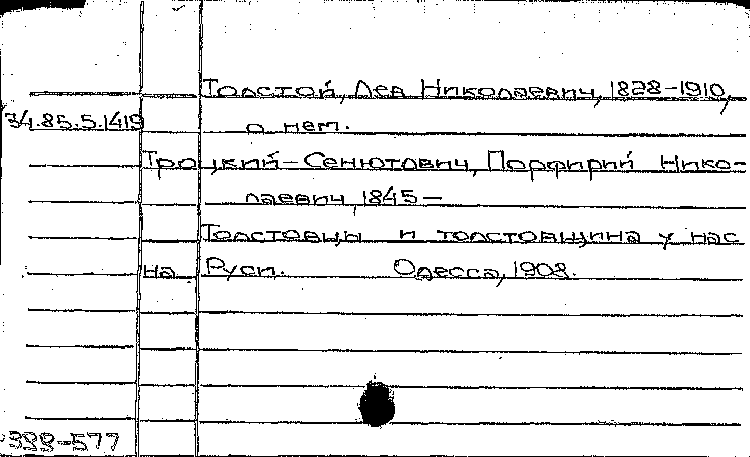 Толстой, Лев Николаевич, 1828-1910,
34.85.5.1419 о нем.
Троцкий-Сенютович, Порфирий Нико-
лаевич, 1845-
Толстовцы и толстовщина у нас
на Руси. Одесса, 1908.
399-577